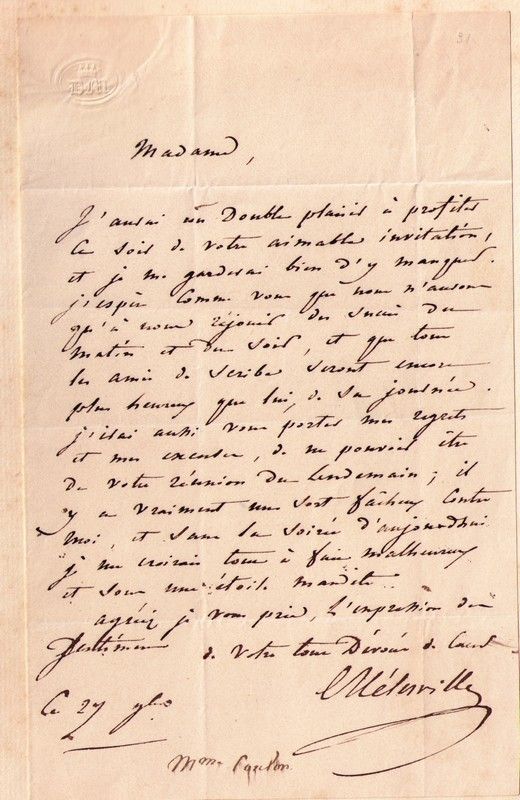 31
Madame,
J'aurai un Double plaisir à profiter
ce soir de votre aimable invitation,
et je me garderai bien d'y manquer.
j'espère comme vous que nous n'aurons
qu'à nous réjouir des succès du
matin et du soir, et que tous
les amis de Scribe seront encore
plus heureux que lui, de sa journée.
j'irai aussi vous porter mes regrets
et mes excuses, de ne pouvoir être
de votre réunion du Lendemain; il
y a vraiment un sort fâcheux contre
moi, et sans la soirée d'aujourd'hui
je me croirais tout à fait malheureux
et sous une étoile maudite.
agréez je vous prie, L'expression des
Sentimens de votre tout Dévoué de Coeur
Mélesville
Ce 27 9bre
Mme